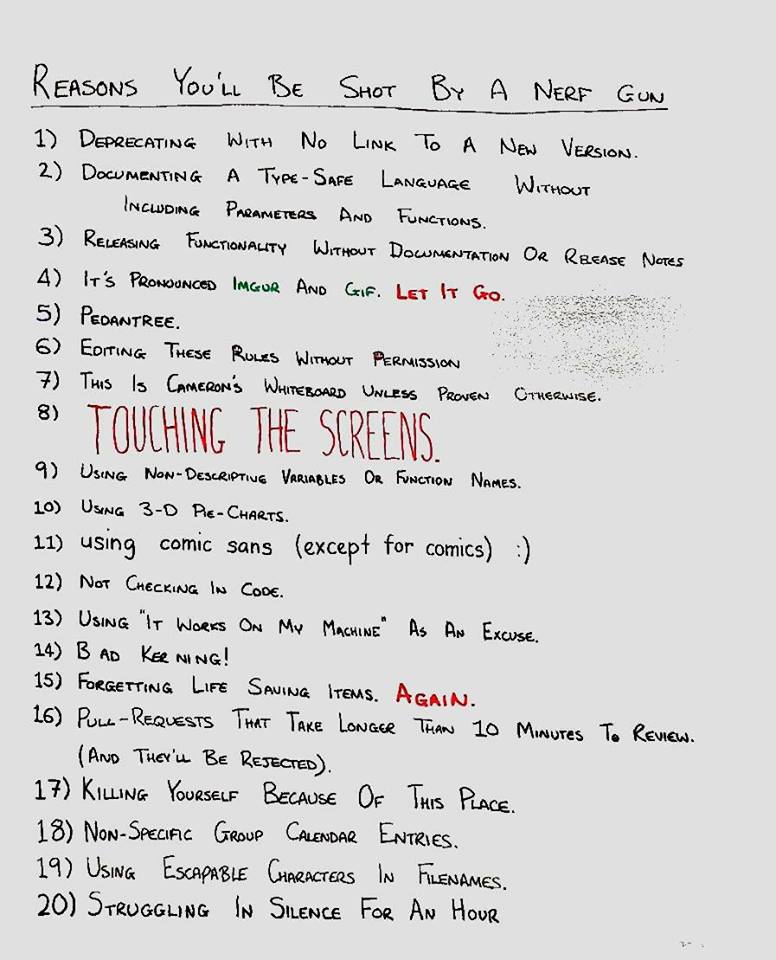 Reasons You'll Be Shot By A Nerf Gun
1) Deprecating With No Link To A New Version.
2) Documenting A Type-Safe Language Without
Including Parameters And Functions.
3) Releasing Functionality Without Documentation Or Release Notes
4) It's Pronounced Imgur And Gif. Let It Go.
5) Pedantree.
6) Editing These Rules Without Permission
7) This Is Cameron's Whiteboard Unless Proven Otherwise.
8) TOUCHING THE SCREENS.
9) Using Non-Descriptive Variables Or Function Names.
10) Using 3-D Pie-Charts.
11) using comic sans (except for comics) :)
12) Not Checking In Code.
13) Using "It Works On My Machine" As An Excuse.
14) B ad Ker ning!
15) Forgetting Life Saving Items. Again.
16) Pull-Requests That Take Longer Than 10 Minutes To Review.
(And They'll Be Rejected).
17) Killing Yourself Because Of This Place.
18) Non-Specific Group Calendar Entries.
19) Using Escapable Characters In Filenames.
20) Struggling In Silence For An Hour